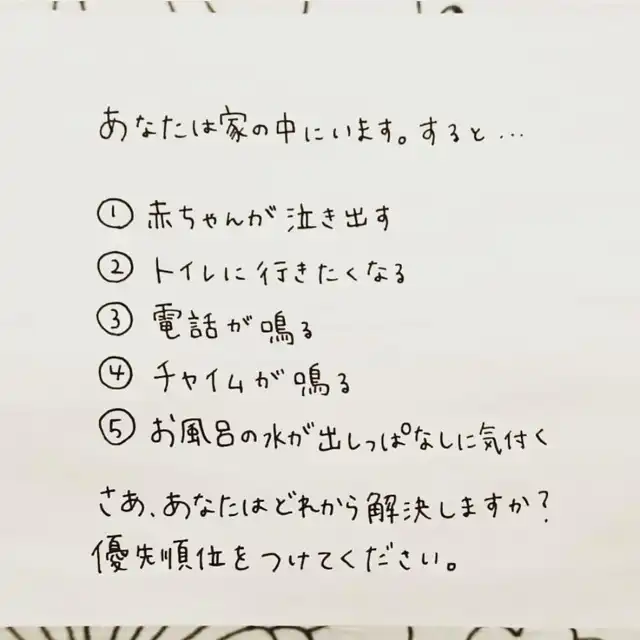 あなたは家の中にいます。すると…
① 赤ちゃんが泣き出す
② トイレに行きたくなる
③ 電話が鳴る
④ チャイムが鳴る
⑤ お風呂の水が出しっぱなしに気付く
さあ、あなたはどれから解決しますか?
優先順位をつけてください。